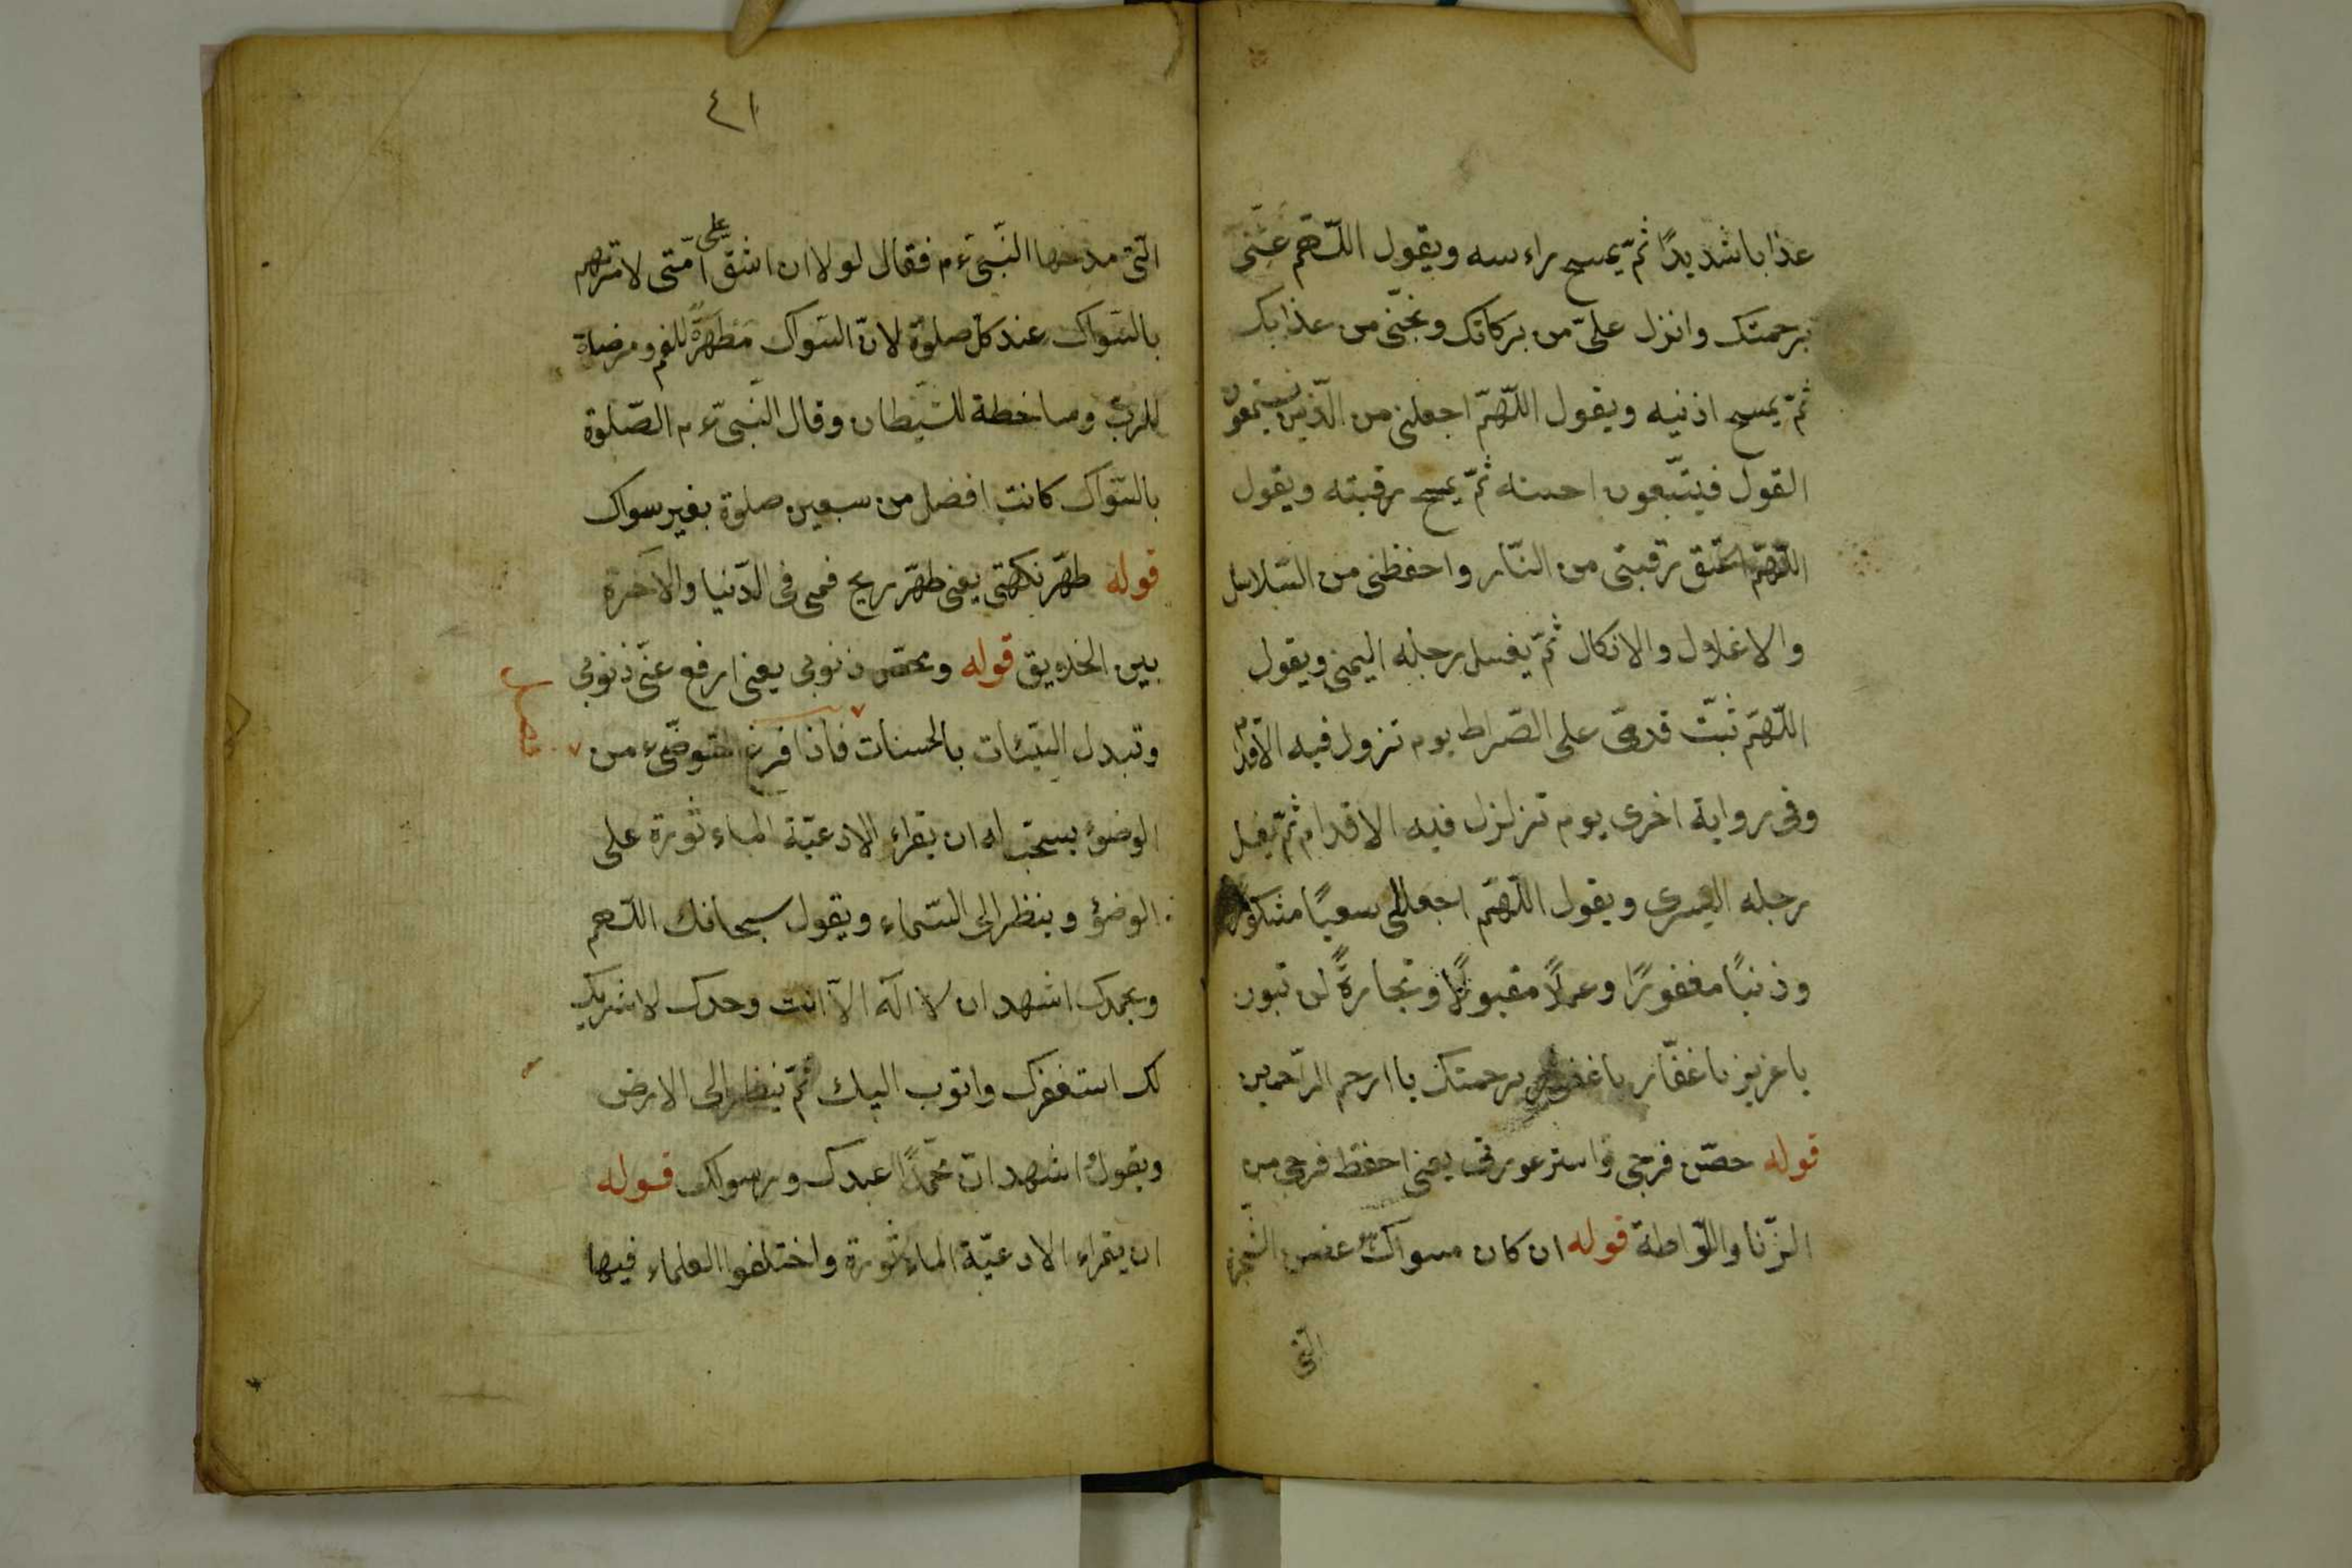 عذابا شديدًا ثمّ يمسح راءسه ويقول اللّهمّ غشّنى
برحمتك وانزل علىّ من بركاتك ونجّنى من عذابك
ثمّ يمسح اذنيه ويقول اللّهمّ اجعلنى من الّذين يستمعون
القول فيتّبعون احسنه ثمّ يمسح رقبته ويقول
اللّهمّ اعتق رقبتى من النّار واحفظنى من السّلاسل
والاغلال والانكال ثمّ يغسل رجله اليمنى ويقول
اللّهمّ ثبّت قدمىّ على الصّراط يوم تزول فيه الاقدام
وفى رواية اخرى يوم تزلزل فيه الاقدام ثمّ يغسل
رجله اليسرى ويقول اللّهمّ اجعل لى سعيًا مشكورًا
وذنبًا مغفورًا وعملاً مقبولًا وتجارةً لن تبور
يا عزيز يا غفّار يا غفور برحمتك يا ارحم الرّاحمين
قوله حصّن فرجى واستر عورتى يعنى احفظ فرجى من
الزّنا واللّواطة قوله ان كان مسواك غصن الشّجرة
الّتى
٤١
الّتى مدحها النّبىّ عم فقال لولا ان اشقّ على امّتى لامرتهم
بالسّواك عند كلّ صلوة لانّ السّواك مطهّرةً للفم ومرضاة
للربّ ومساخطة للشّيطان وقال النّبىّ عم الصّلوة
بالسّواك كانت افضل من سبعين صلوة بغير سواك
قوله طهّر نكهتى يعنى طهّر ريح فمى فى الدّنيا والاخرة
بين الخلايق قوله ومحّص ذنوبى يعنى ارفع عنّى ذنوبى
وتبدل السّيّئات بالحسنات فاذا فرغ المتوضّىء من
الوضؤ يستحب له ان يقراء الادعيّة الماءثورة على
الوضؤ وينظر الى السّماء ويقول سبحانك اللّهم
وبحمدك اشهد ان لا اله الّا انت وحدك لا شريك
لك استغفرك واتوب اليك ثمّ ينظر الى الارض
ويقول اشهد انّ محمّدًا عبدك ورسولك قوله
ان يقراء الادعيّة الماءثورة واختلفوا العلماء فيها